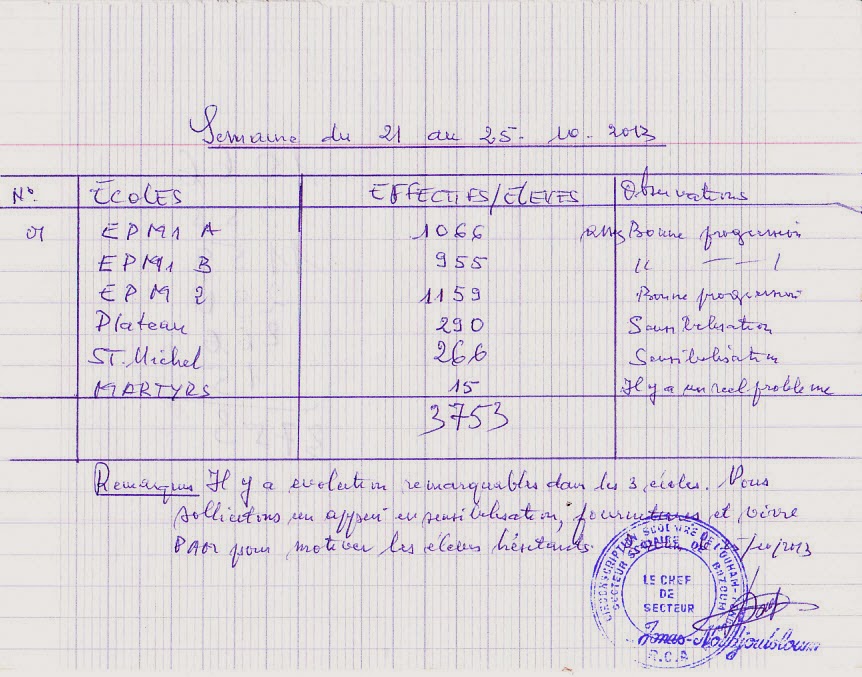 Semaine du 21 au 25-10-2013
N° ECOLES EFFECTIFS/ELEVES Observations
01 EPM1 A 1066 assez Bonne progression
EPM1 B 955 " — /
EPM 2 1159 Bonne progression
Plateau 290 Sensibilisation
ST. Michel 266 Sensibilisation
MARTYRS 15 Il y a un reel probleme
3753
Remarques Il y a evolution remarquables dans les 3 écoles. Nous
sollicitons un appui en sensibilisation, fournitures et vivre
PAM pour motiver les eleves hésitants
/10/2013
CIRCONSCRIPTION SCOLAIRE DE L'OUHAM-
SECTEUR SCOLAIRE DE BOZOUM
LE CHEF
DE
SECTEUR
R.C.A